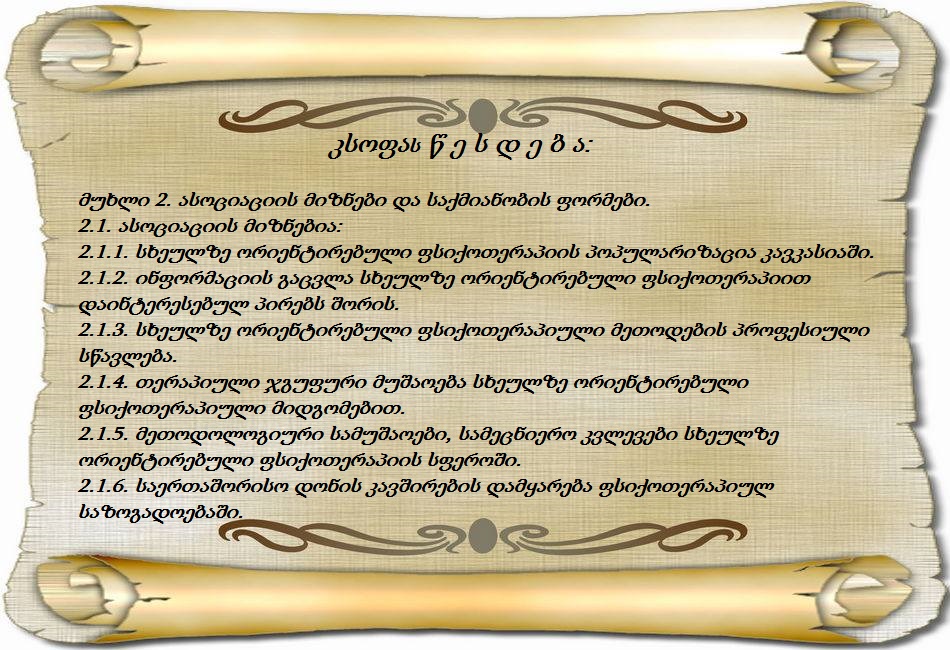 კსოფას წ ე ს დ ე ბ ა:
მუხლი 2. ასოციაციის მიზნები და საქმიანობის ფორმები.
2.1. ასოციაციის მიზნებია:
2.1.1. სხეულზე ორიენტირებული ფსიქოთერაპიის პოპულარიზაცია კავკასიაში.
2.1.2. ინფორმაციის გაცვლა სხეულზე ორიენტირებული ფსიქოთერაპიით
დაინტერესებულ პირებს შორის.
2.1.3. სხეულზე ორიენტირებული ფსიქოთერაპიული მეთოდების პროფესიული
სწავლება.
2.1.4. თერაპიული ჯგუფური მუშაობა სხეულზე ორიენტირებული
ფსიქოთერაპიული მიდგომებით.
2.1.5. მეთოდოლოგიური სამუშაოები, სამეცნიერო კვლევები სხეულზე
ორიენტირებული ფსიქოთერაპიის სფეროში.
2.1.6. საერთაშორისო დონის კავშირების დამყარება ფსიქოთერაპიულ
საზოგადოებაში.